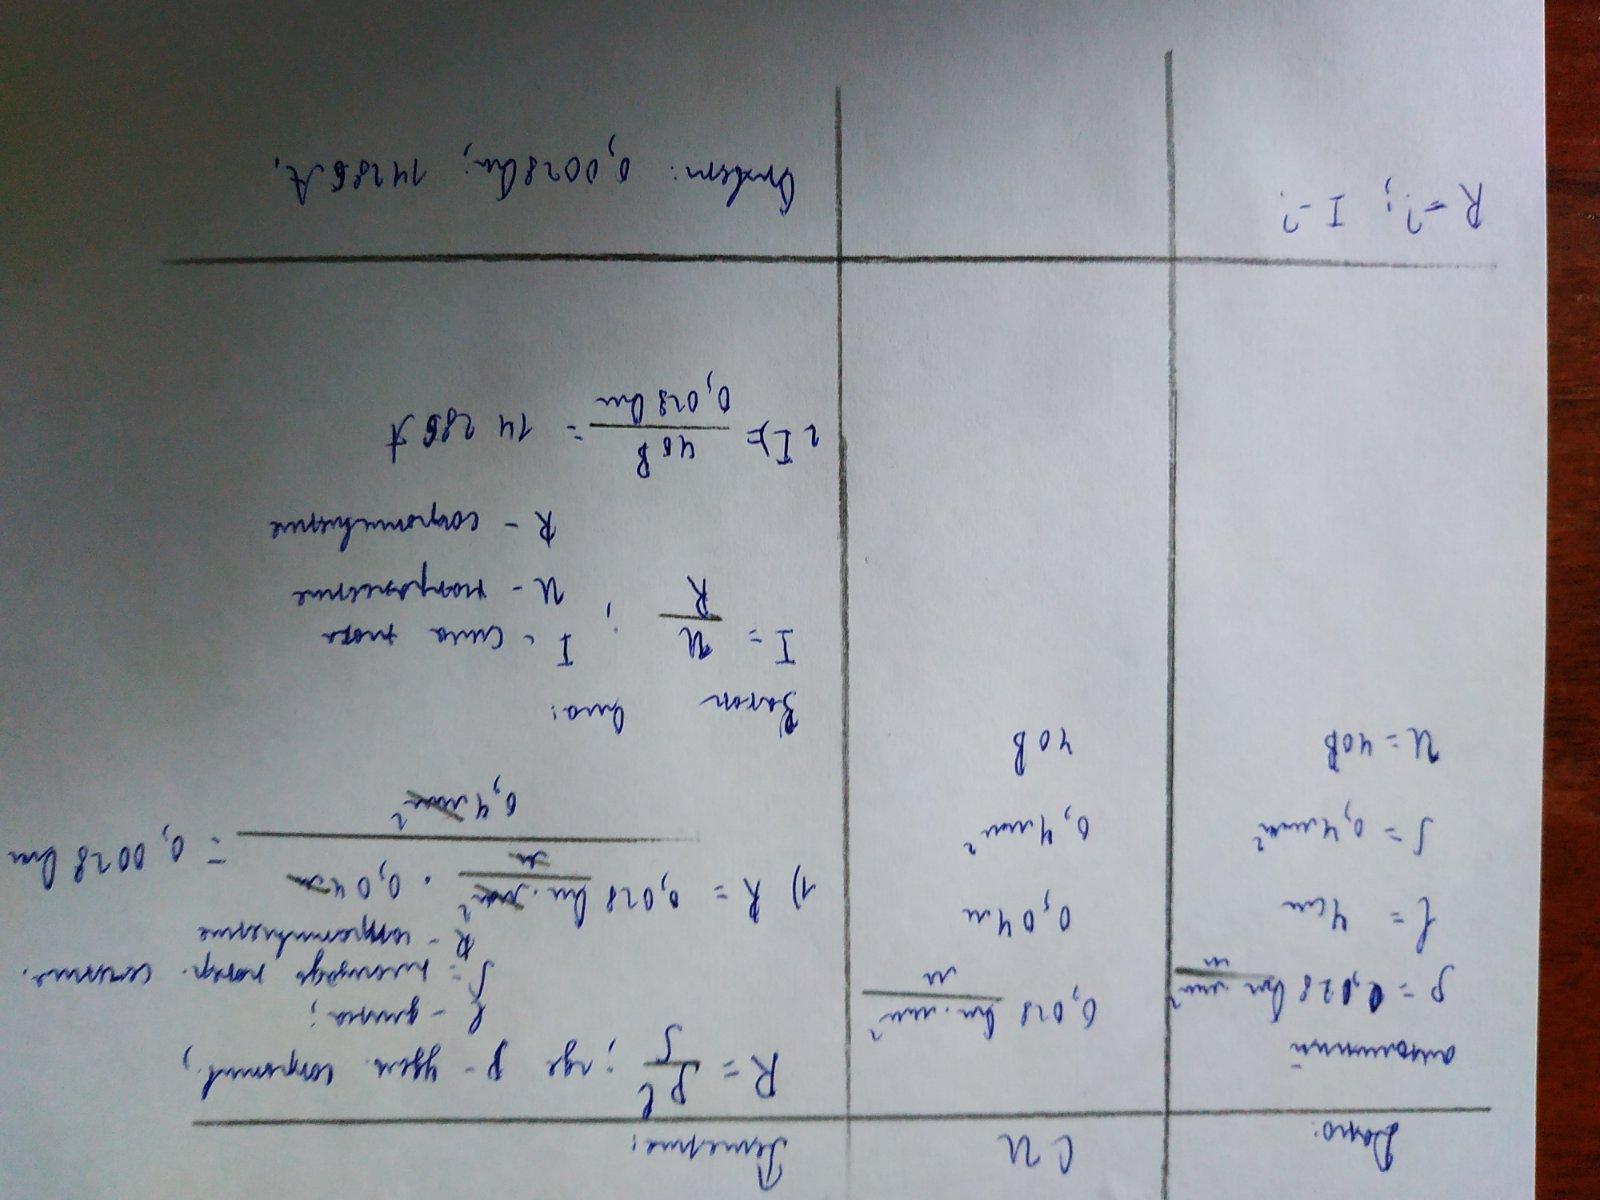 Дано:
алюминий
ρ = 0,028 Ом·мм²/м
l = 4см
S = 0,4 мм²
U = 40В
R-?; I-?
СИ
0,028 Ом·мм²/м
0,04 м
0,4 мм²
40В
Решение:
R = ρl/S; где ρ - удел. сопротивл,
l - длина;
S = площадь попер. сечения.
R - сопротивление
1) R = 0,028 Ом·мм²/м · 0,04м / 0,4 мм² = 0,0028 Ом
Закон Ома:
I = U/R; I - сила тока
U - напряжение
R - сопротивление
2) I = 40В / 0,028 Ом = 14 286 А
Ответ: 0,0028 Ом; 14286 А.